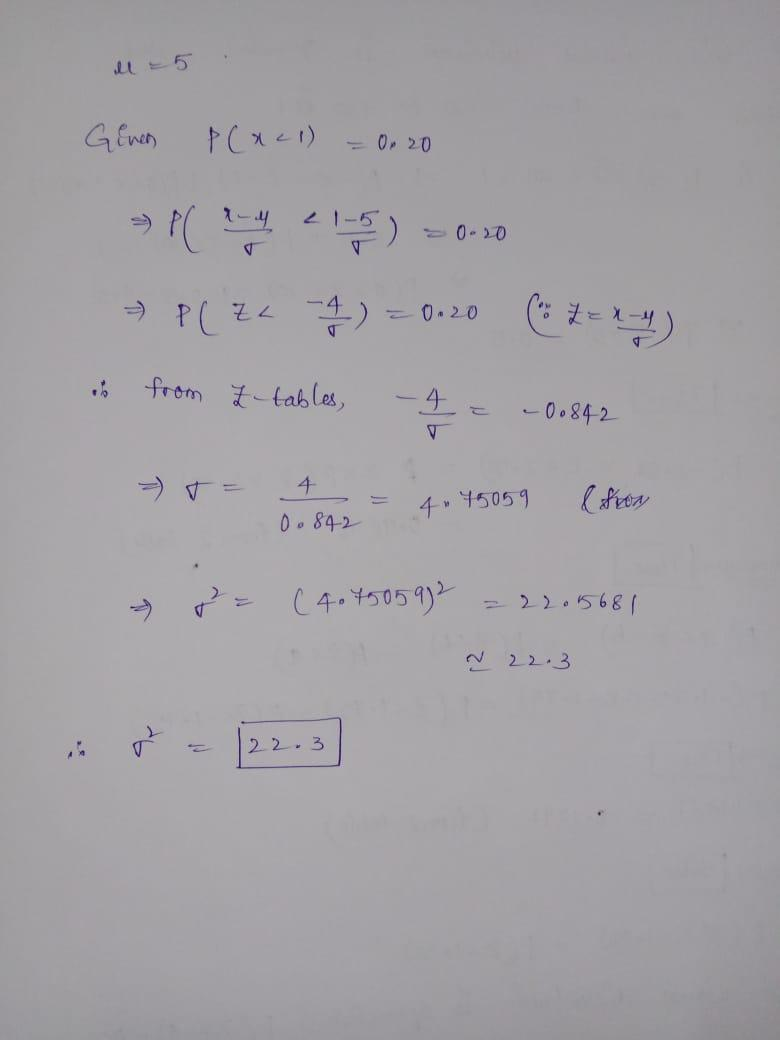 μ = 5
Given P(x<1) = 0.20
⇒ P( (x-μ)/σ < (1-5)/σ ) = 0.20
⇒ P( Z < -4/σ ) = 0.20 (∵ Z = (x-μ)/σ)
∴ from Z-tables, -4/σ = -0.842
⇒ σ = 4/0.842 = 4.75059 (from
⇒ σ² = (4.75059)² = 22.5681
≃ 22.3
∴ σ² = 22.3